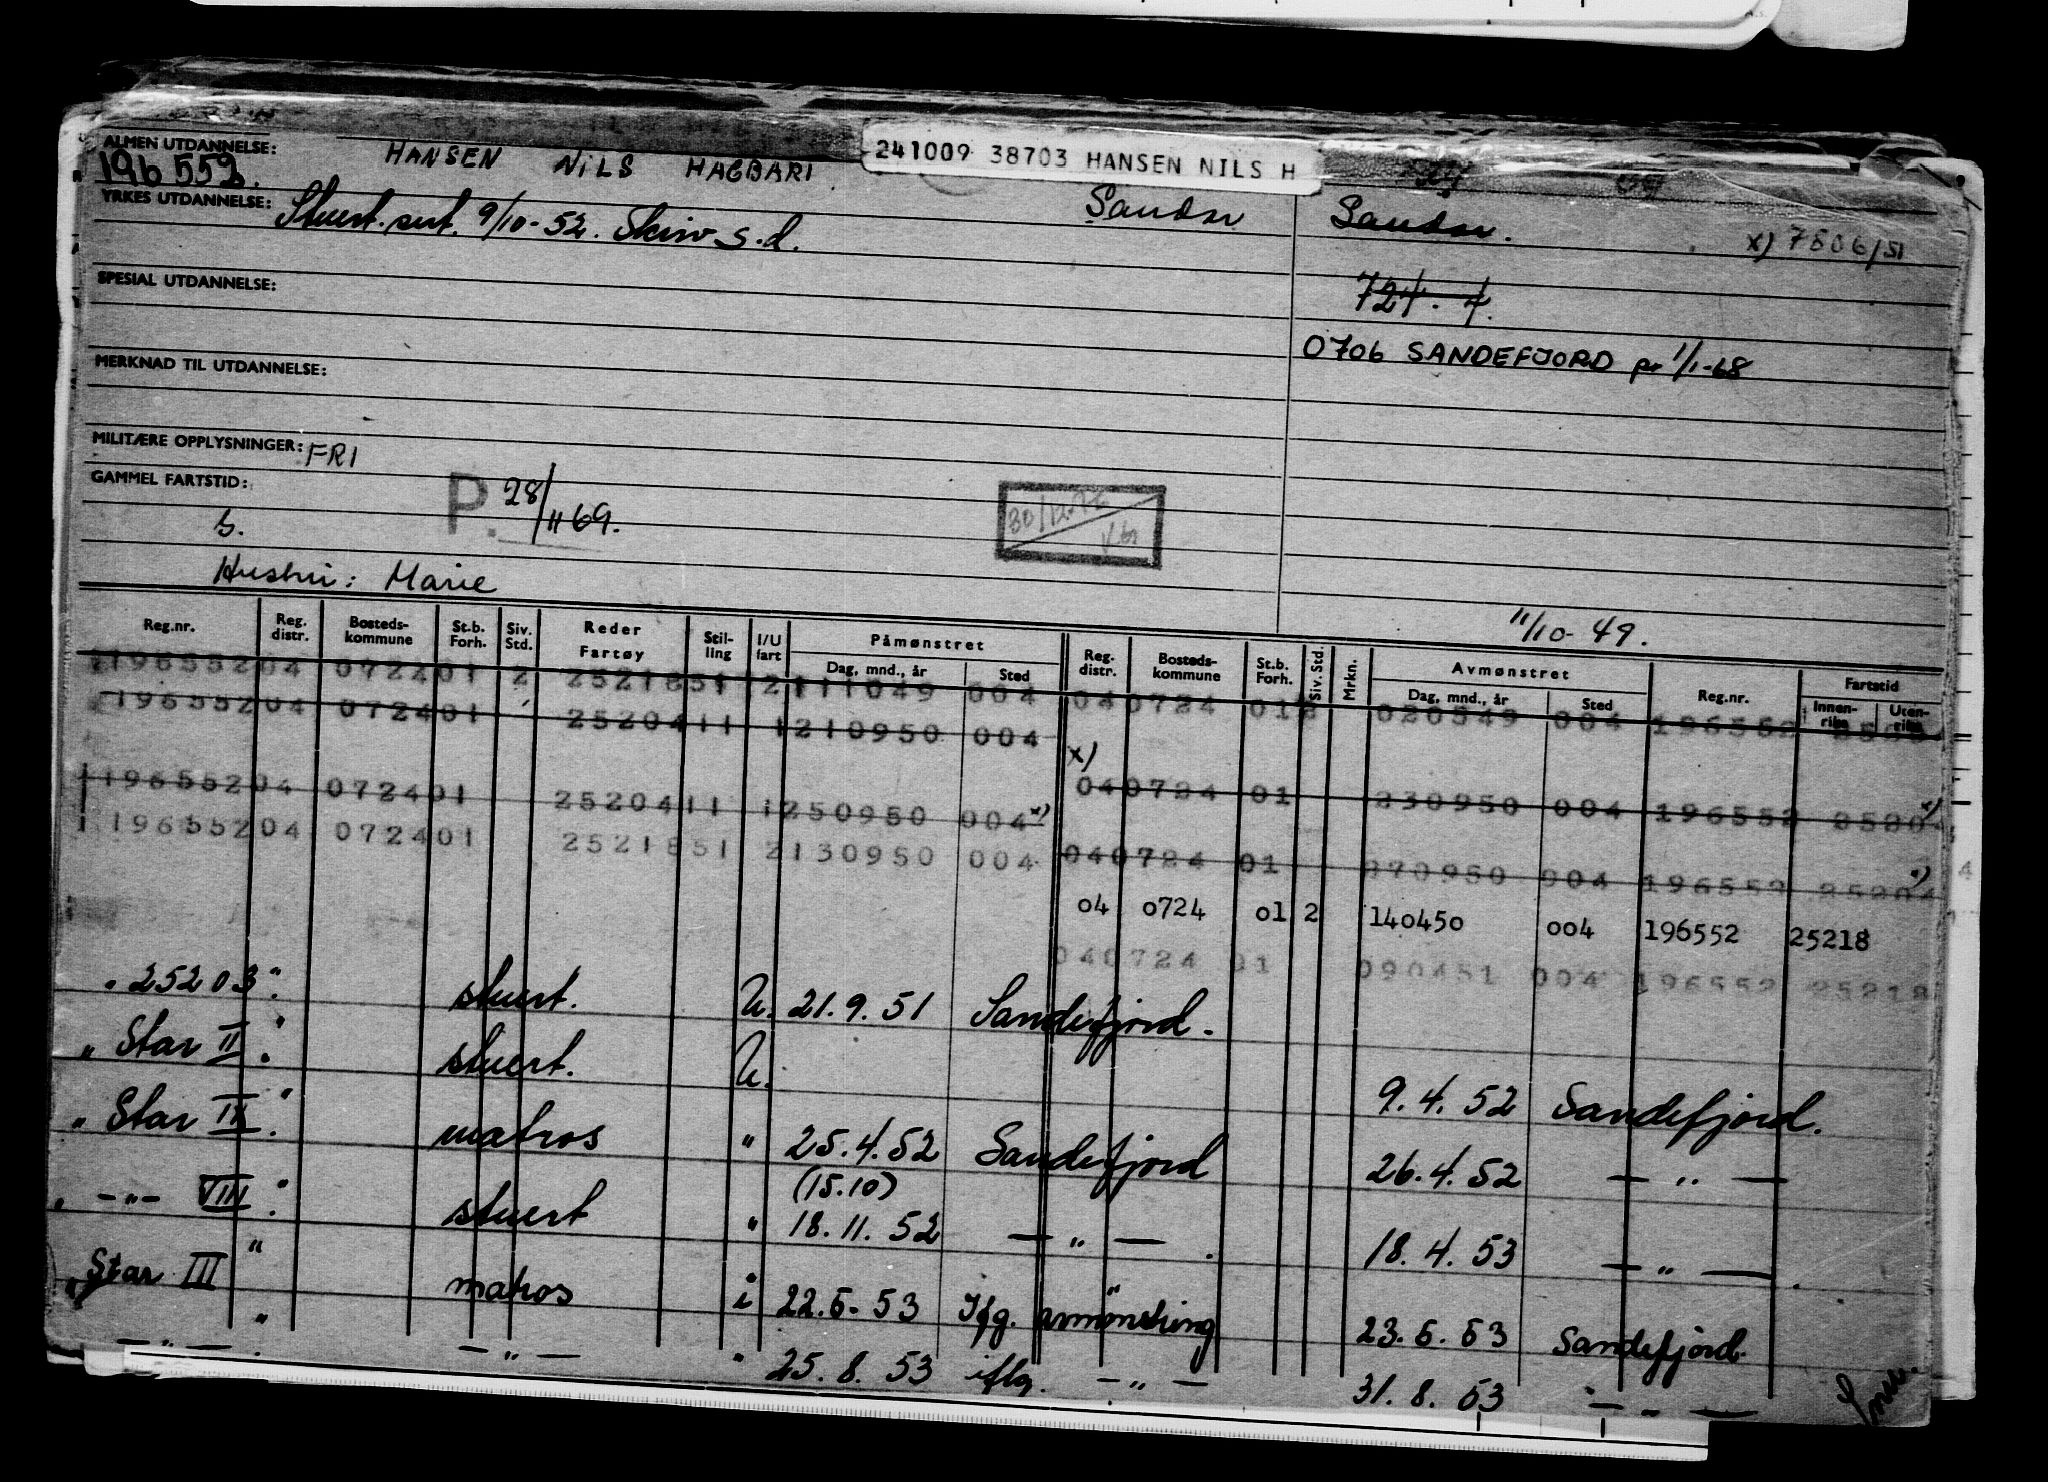 ALMEN UTDANNELSE: HANSEN NILS HAGBART 241009 38703 HANSEN NILS H
196552.
YRKES UTDANNELSE: Stuert.sert. 9/10-52. Skiw s.d. Sandar Sandar. x) 7806/51
SPESIAL UTDANNELSE: 724. 4.
0706 SANDEFJORD pr 1/1-68
MERKNAD TIL UTDANNELSE:
MILITÆRE OPPLYSNINGER: FRI
GAMMEL FARTSTID: P. 28/11 69. 30/12-76
S.
Hustru: Marie
11/10-49.
Reg.nr. Reg. distr. Bosteds-kommune St.b. Forh. Siv. Std. Reder Fartøy Stil-ling I/U fart Påmønstret Dag, mnd., år Sted Reg. distr. Bosteds-kommune St.b. Forh. Siv. Std. Mrkn. Avmønstret Dag, mnd., år Sted Reg.nr. Fartstid Innen-riks Uten-riks
196552 04 0724 01 2 25218 51 2 111049 004 04 0724 01 2 020549 004 196552
196552 04 0724 01 25204 11 1 210950 004
x)
196552 04 0724 01 25204 11 1 250950 004 x) 04 0724 01 230950 004 196552 25204 x)
196552 04 0724 01 25218 51 2 130950 004 04 0724 01 270950 004 196552 25204 x)
04 0724 01 2 140450 004 196552 25218
04 0724 01 090451 004 196552 25218
"25203". stuert. U. 21.9.51 Sandefjord.
"Star II". stuert. U. 9.4.52 Sandefjord.
"Star II". matros " 25.4.52 Sandefjord 26.4.52 — " —
(15.10)
" —"— VIII". stuert " 18.11.52 — " — . 18.4.53 — " — .
"Star III" matros i 22.5.53 Ifg. avmønstring 23.5.53 Sandefjord.
— " — " — " — " 25.8.53 iflg. — " — 31.8.53 — " —
Snu.